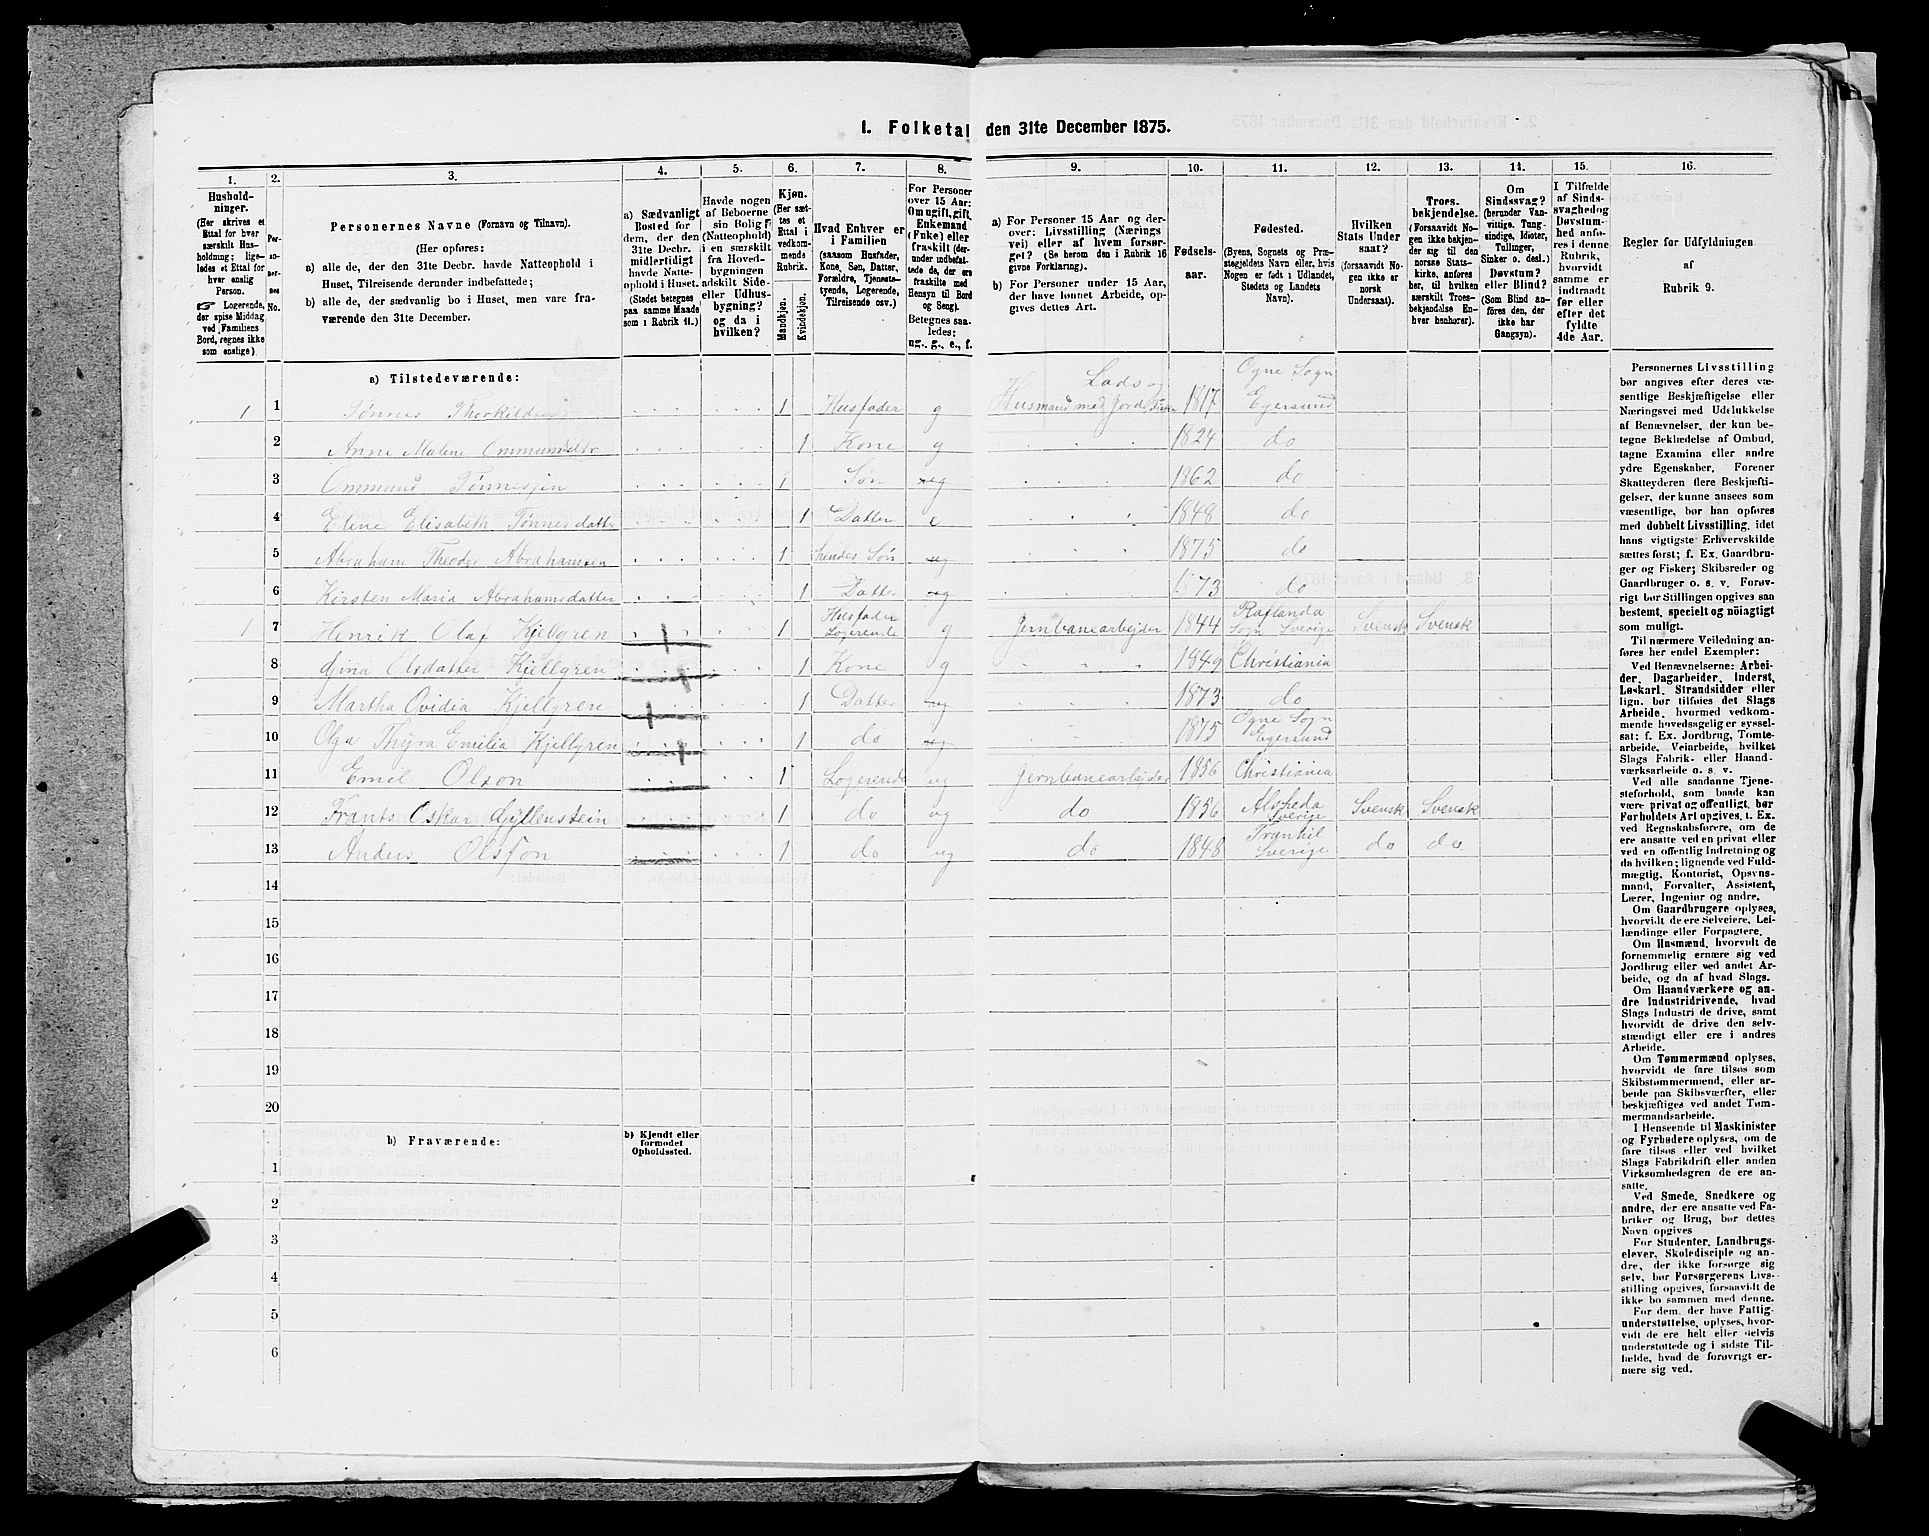 1. Folketal den 31te December 1875.
1.
2.
3.
4.
5.
6.
7.
8.
9.
10.
11.
12.
13.
14.
15.
16.
Hushold-
ninger.
(Her skrives et
Ettal for hver
særskilt Hus-
holdning; lige-
ledes et Ettal for
hver enslig
Person.
☞ Logerende,
der spise Middag
ved Familiens
Bord, regnes ikke
som enslige)
Per-
so-
ner-
nes
No.
Personernes Navne (Fornavn og Tilnavn).
(Her opføres:
a) alle de, der den 31te Decbr. havde Natteophold i
Huset, Tilreisende derunder indbefattede;
b) alle de, der sædvanlig bo i Huset, men vare fra-
værende den 31te December.
a) Sædvanligt
Bosted for
dem, der den
31te Decbr.
midlertidigt
havde Natte-
ophold i Huset.
(Stedet betegnes
paa samme Maade
som i Rubrik 11.)
Havde nogen
af Beboerne
sin Bolig
(Natteophold)
i en særskilt
fra Hoved-
bygningen
adskilt Side-
eller Udhus-
bygning?
og da i
hvilken?
Kjøn.
(Her sæt-
tes et
Ettal i
vedkom-
mende
Rubrik.
Mandkjøn.
Kvindekjøn.
Hvad Enhver er
i Familien
(saasom Husfader,
Kone, Søn, Datter,
Forældre, Tjeneste-
tyende, Logerende,
Tilreisende osv.)
For Personer
over 15 Aar:
Om ugift, gift,
Enkemand
(Enke) eller
fraskilt (der-
under indbefat-
tede de, der ere
fraskilte med
Hensyn til Bord
og Seng).
Betegnes saa-
ledes:
ug., g., e., f.
a) For Personer 15 Aar og der-
over: Livsstilling (Nærings
vei) eller af hvem forsør-
get? (Se herom den i Rubrik 16
givne Forklaring).
b) For Personer under 15 Aar,
der have lønnet Arbeide, op-
gives dettes Art.
Fødsels-
aar.
Fødested.
(Byens, Sognets og Præ-
stegjeldets Navn eller, hvis
Nogen er født i Udlandet,
Stedets og Landets
Navn).
Hvilken
Stats Under
saat?
(forsaavidt No-
gen ikke er
norsk
Undersaat).
Troes-
bekjendelse.
(Forsaavidt No-
gen ikke bekjen-
der sig til den
norske Stats-
kirke, anføres
her, til hvilken
særskilt Troes-
bekjendelse En-
hver henhører).
Om
Sindssvag?
(herunder Van-
vittige, Tung-
sindige, Idioter,
Tullinger,
Sinker o. desl.)
Døvstum?
eller Blind?
(Som Blind an-
føres den, der
ikke har
Gangsyn).
I Tilfælde
af Sinds-
svaghed og
Døvstum-
hed anfø-
res i denne
Rubrik,
hvorvidt
samme er
indtraadt
før eller
efter det
fyldte
4de Aar.
Regler for Udfyldningen
af
Rubrik 9.
a) Tilstedeværende:
1 1 Tønnes Thorkildsen 1 Husfader g Husmand med Jord Lods og 1817 Ogne Sogn Egersund
2 Anne Malene Ommundsdtr 1 Kone g 1824 do
3 Ommund Tønnessen 1 Søn ug 1862 do
4 Elene Elisabeth Tønnesdatter 1 Datter e 1848 do
5 Abraham Theodor Abrahamsen 1 hendes Søn ug 1875 do
6 Kirsten Maria Abrahamsdatter 1 Datter ug 1873 do
1 7 Henrik Olaf Kjellgren 1 Husfader Logerende g Jernbanearbejder 1844 Raflanda Sogn Sverige Svensk Svensk
8 Olsdatter Kjellgren 1 Kone g 1849 Christiania
9 Martha Ovidia Kjellgren 1 Datter ug 1873 do
10 Olga Thyra Emilia Kjellgren 1 do ug 1875 Ogne Sogn Egersund
11 Emil Olson 1 Logerende ug Jernbanearbejder 1856 Christiania
12 Frants Oskar Gyllenstein 1 do ug do 1856 Alsheda Sverige Svensk Svensk
13 Anders Olsson 1 do ug do 1848 Tranhil Sverige do do
14
15
16
17
18
19
20
b) Fraværende:
b) Kjendt eller
formodet
Opholdssted.
1
2
3
4
5
6
Personernes Livsstilling
bør angives efter deres væ-
sentlige Beskjæftigelse eller
Næringsvei med Udelukkelse
af Benævnelser, der kun be-
tegne Beklædelse af Ombud,
tagne Examina eller andre
ydre Egenskaber. Forener
Skatteyderen flere Beskjæfti-
gelser, der kunne ansees som
væsentlige, bør han opføres
med dobbelt Livsstilling, idet
hans vigtigste Erhvervskilde
sættes først; f. Ex. Gaardbru-
ger og Fisker; Skibsreder og
Gaardbruger o. s. v. Forøv-
rigt bør Stillingen opgives saa
bestemt, specielt og nöiagtigt
som muligt.
Til nærmere Veiledning an-
føres her endel Exempler:
Ved Benævnelserne: Arbei-
der, Dagarbeider, Inderst,
Løskarl, Strandsidder eller
lign. bør tilføies det Slags
Arbeide, hvormed vedkom-
mende hovedsagelig er syssel-
sat: f. Ex. Jordbrug, Tomte-
arbeide, Veiarbeide, hvilket
Slags Fabrik- eller Haand-
værksarbeide o. s. v.
Ved alle saadanne Tjene-
steforhold, som baade kan
være privat og offentligt, bør
Forholdets Art opgives, t. Ex.
ved Regnskabsførere, om de
ere ansatte ved en privat eller
ved en offentlig Indretning og
da hvilken; lignende ved Fuld-
mægtig, Kontorist, Opsyns-
mand, Forvalter, Assistent,
Lærer, Ingeniør og andre.
Om Gaardbrugere oplyses,
hvorvidt de ere Selveiere, Lei-
lændinge eller Forpagtere.
Om Husmænd, hvorvidt de
fornemmelig ernære sig ved
Jordbrug eller ved andet Ar-
beide, og da af hvad Slags.
Om Haandværkere og an-
dre Industridrivende, hvad
Slags Industri de drive, samt
hvorvidt de drive den selv-
stændigt eller ere i andres
Arbeide.
Om Tømmermænd oplyses,
hvorvidt de fare tilsøs som
Skibstømmermænd, eller ar-
beide paa Skibsværfter, eller
beskjæftiges ved andet Tøm-
mermandsarbeide.
I Henseende til Maskinister
og Fyrbødere oplyses, om de
fare tilsøs eller ved hvilket
Slags Fabrikdrift eller anden
Virksomhedsgren de ere an-
satte.
Ved Smede, Snedkere og
andre, der ere ansatte ved Fa-
briker og Brug, bør dettes
Navn opgives
For Studenter, Landbrugs-
elever, Skoledisciple og an-
dre, der ikke forsørge sig
selv, bør Forsørgerens Livs-
stilling opgives, forsaavidt de
ikke bo sammen med denne.
For dem, der have Fattig-
understøttelse, oplyses, hvor-
vidt de ere helt eller delvis
understøttede og i sidste Til-
fælde, hvad de forøvrigt er-
nære sig ved.